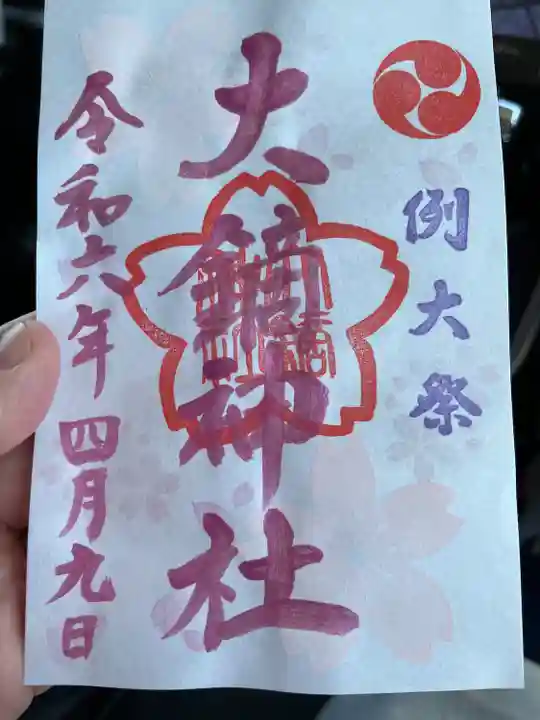 例大祭
大鏑神社
令和六年四月九日